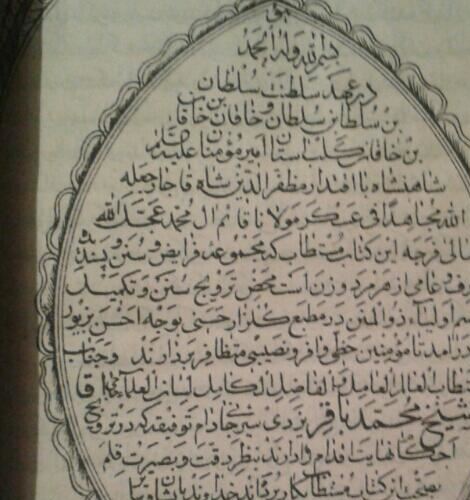 هو
بسم الله وله الحمد
در عهد سلطنت سلطان
بن سلطان بن سلطان و خاقان بن خاقان
بن خاقان کلب استان امیر مؤمنان علیه
شاهنشاه با اقتدار مظفر الدین شاه قاجار جعله
الله مجاهدا فی عسکر مولانا قائم ال محمد عجل الله
تعالی فرجه این کتاب مستطاب که مجموعه فرایض و سنن و
عامی از هر مرد و زن است محض ترویج سنن و تکمیل
اولیاء ذو المنن در مطبع گلزار حسنی بوجه احسن بزیور
در آمد تا مؤمنین حظی وافر و نصیبی متظافر بردارند و جناب
مستطاب العالم العامل و الفاضل الکامل لسان العلماء اقا
شیخ محمد باقر یزدی خادم توفیقه که در ترویج
احکام نهایت اقدام را دارند بنظر دقت و بصیرت قلم